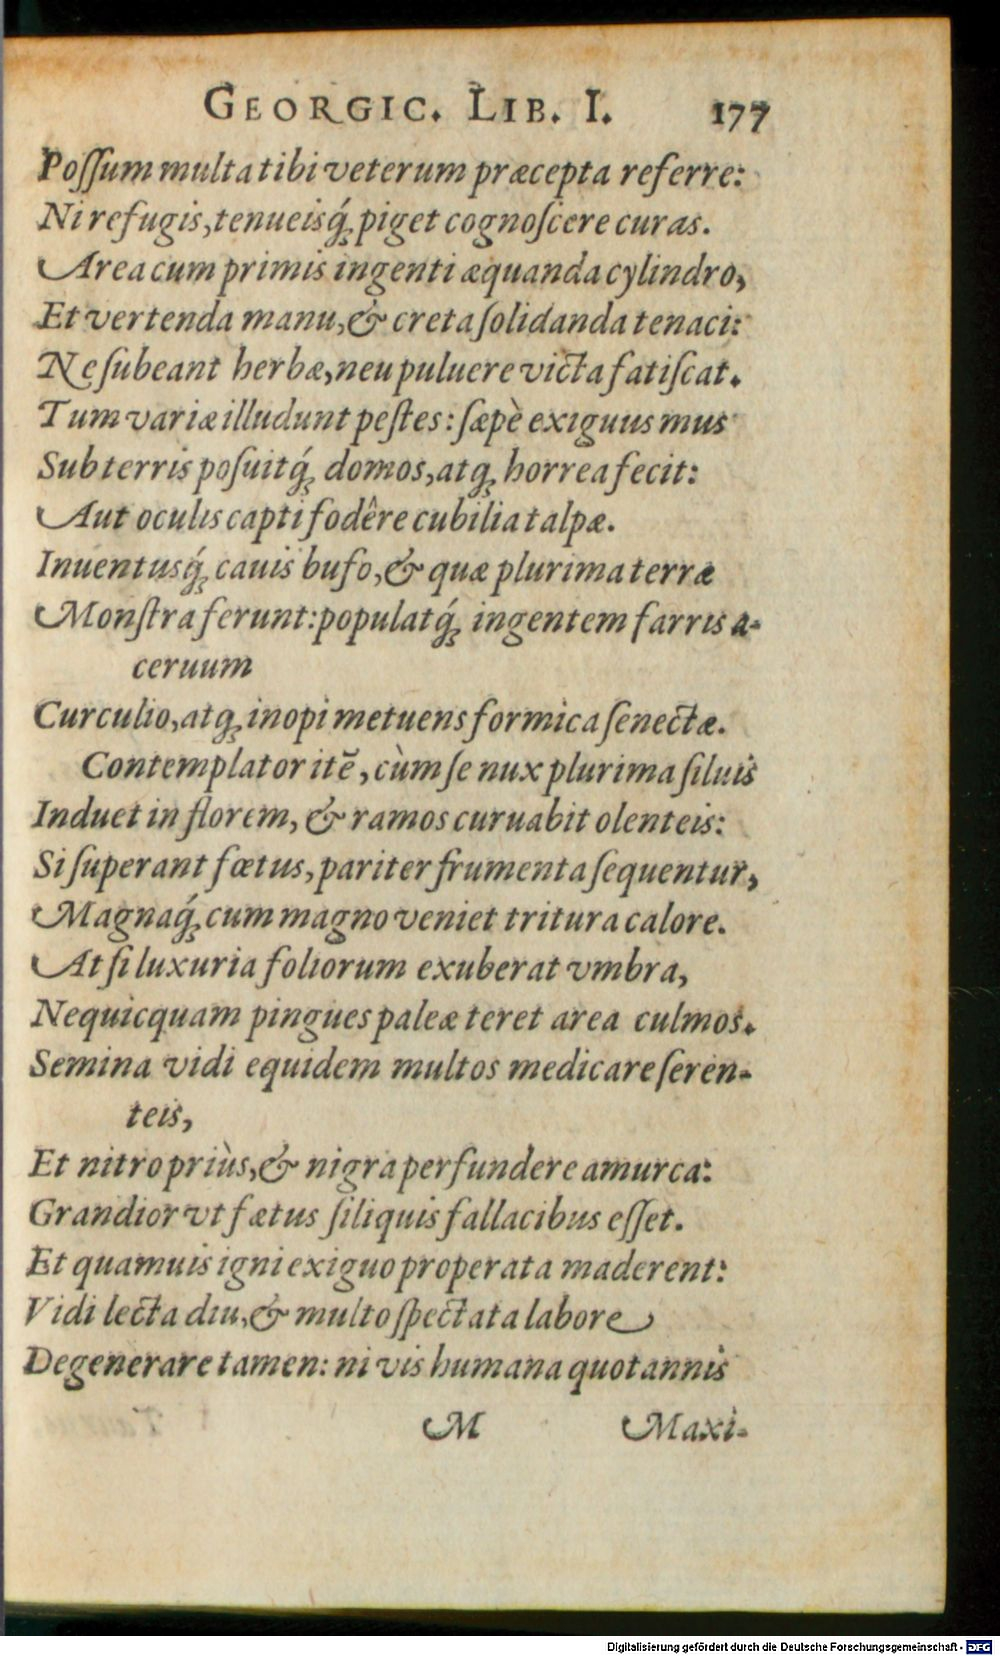 GEORGIC. LIB. I. 177
Poſſum multa tibi veterum præcepta referre:
Ni refugis, tenueisq́ꝫ piget cognoſcere curas.
Area cum primis ingenti æquanda cylindro,
Et vertenda manu, & creta ſolidanda tenaci:
Ne ſubeant herbæ, neu puluere victa fatiſcat.
Tum variæ illudunt peſtes: ſæpè exiguus mus
Sub terris poſuitq́ꝫ domos, atqꝫ horrea fecit:
Aut oculis capti fodêre cubilia talpæ.
Inuentusq́ꝫ cauis bufo, & quæ plurima terræ
Monſtra ferunt: populatq́ꝫ ingentem farris a-
ceruum
Curculio, atqꝫ inopi metuens formica ſenectæ.
Contemplator itē, cùm ſe nux plurima ſiluis
Induet in florem, & ramos curuabit olenteis:
Si ſuperant fœtus, pariter frumenta ſequentur,
Magnaq́ꝫ cum magno veniet tritura calore.
At ſi luxuria foliorum exuberat vmbra,
Nequicquam pingues paleæ teret area culmos.
Semina vidi equidem multos medicare ſeren-
teis,
Et nitro priùs, & nigra perfundere amurca:
Grandior vt fætus ſiliquis fallacibus eſſet.
Et quamuis igni exiguo properata maderent:
Vidi lecta diu, & multo ſpectata labore
Degenerare tamen: ni vis humana quotannis
M Maxi-
Digitalisierung gefördert durch die Deutsche Forschungsgemeinschaft - DFG